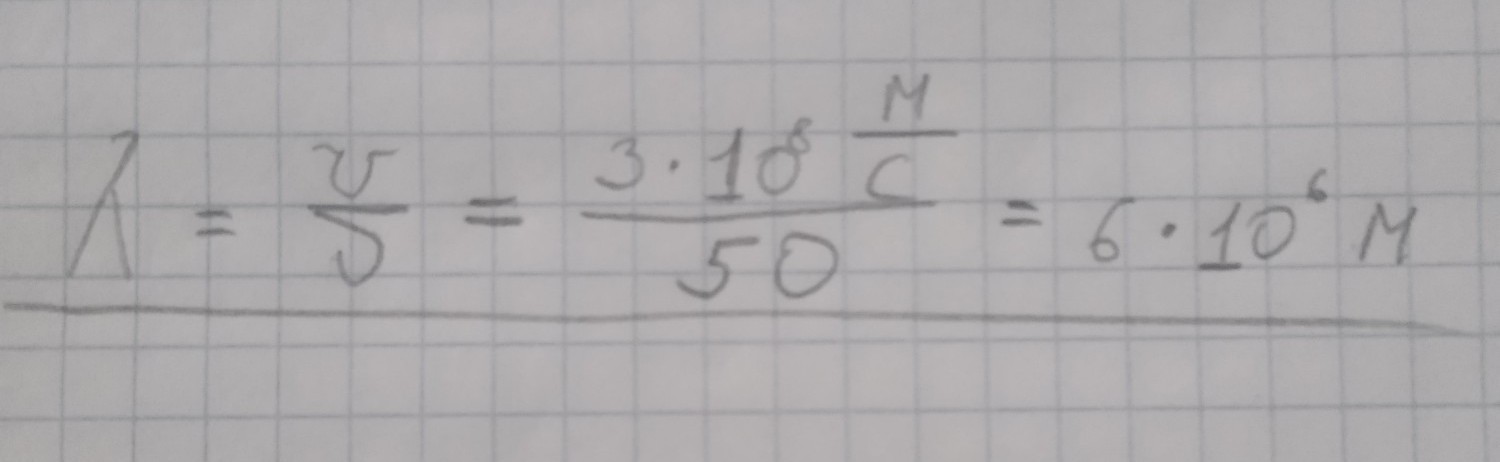 λ = υ/ν = (3·10⁸ м/с)/50 = 6·10⁶ м